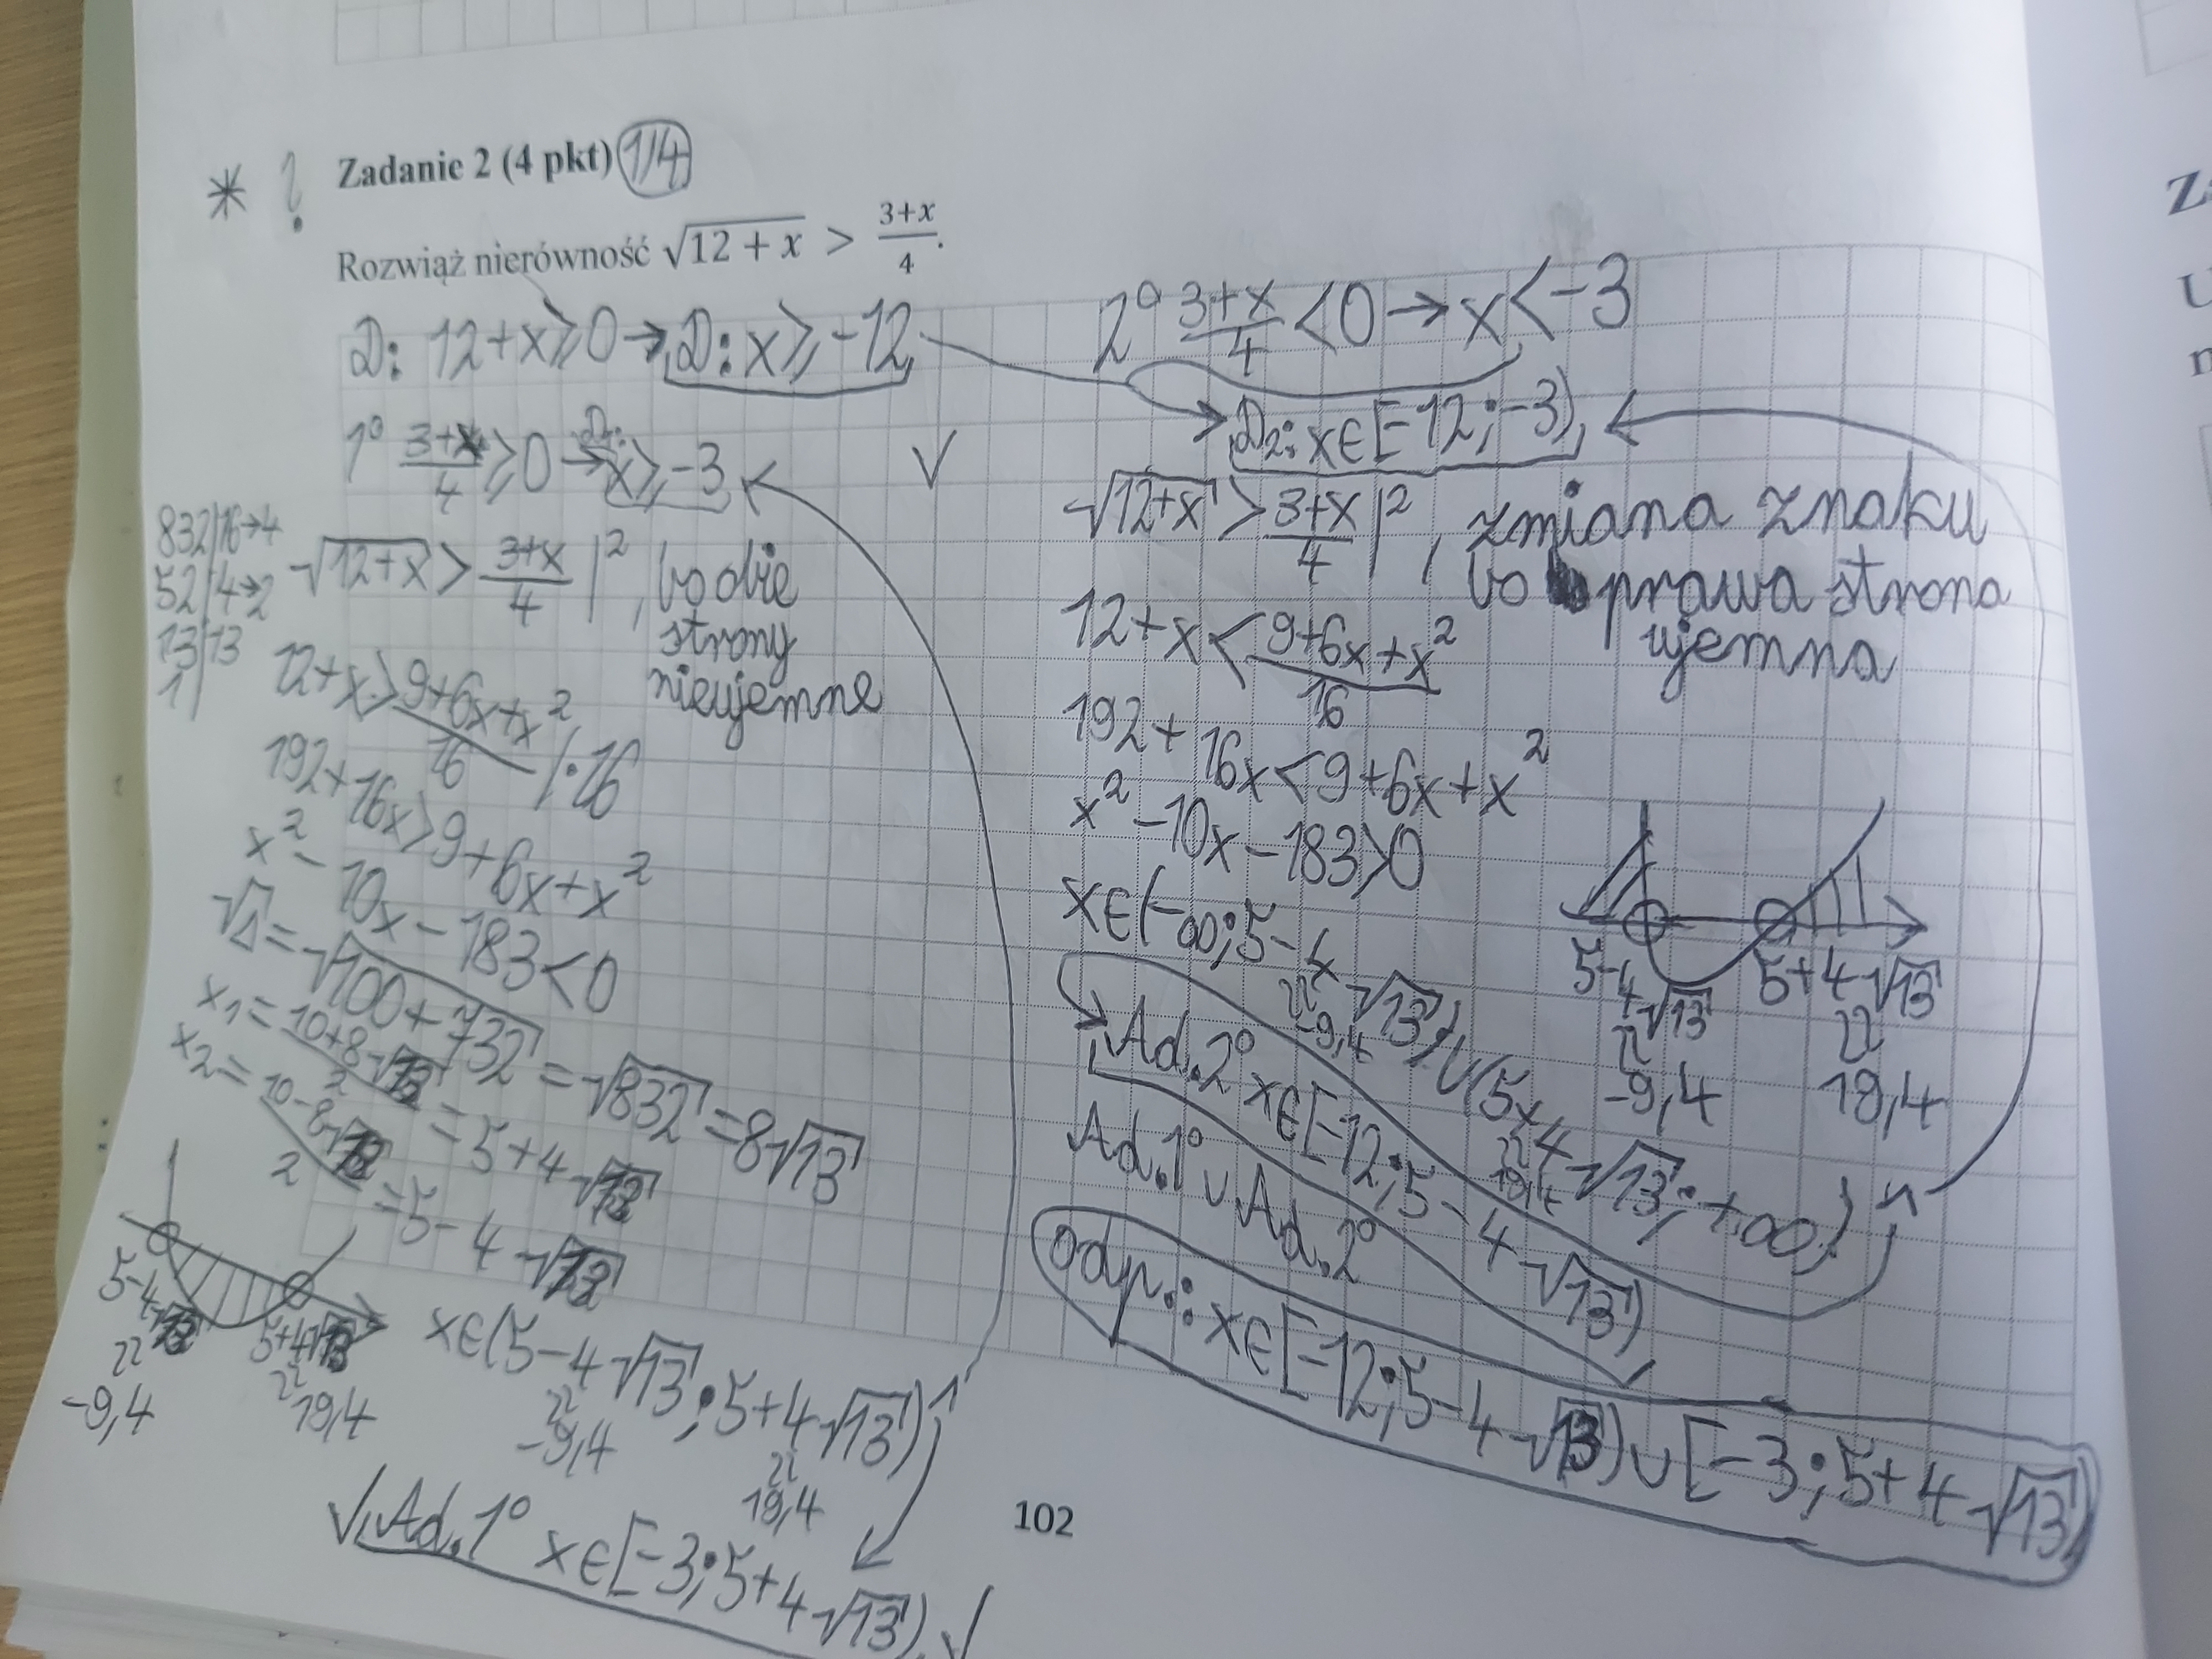 * !
Zadanie 2 (4 pkt) 1/4
Rozwiąż nierówność √(12 + x) > (3+x)/4.
D: 12+x≥0→D: x≥-12
1° (3+x)/4 ≥0 → x≥-3
832|16→4
52|4→2
13|13
1|
√(12+x) > (3+x)/4 |², bo obie
strony
nieujemne
12+x > (9+6x+x²)/16 /·16
192+16x>9+6x+x²
x²-10x-183<0
√Δ=√(100+732)=√832=8√13
x₁=(10+8√13)/2=5+4√13
x₂=(10-8√13)/2=5-4√13
5-4√13 5+4√13
≈ ≈
-9,4 19,4
x∈(5-4√13;5+4√13)
≈ ≈
-9,4 19,4
√ Ad.1° x∈[-3;5+4√13) √
102
2° (3+x)/4 <0→x<-3
√
D₂: x∈[-12;-3)
√(12+x) > (3+x)/4 |², zmiana znaku
bo prawa strona
ujemna
12+x < (9+6x+x²)/16
192+16x<9+6x+x²
x²-10x-183>0
5-4√13 5+4√13
≈ ≈
-9,4 19,4
x∈(-∞;5-4√13)∪(5+4√13;+∞)
≈ ≈
-9,4 19,4
Ad.2° x∈[-12;5-4√13)
Ad.1° ∪ Ad.2°
odp.: x∈[-12;5-4√13)∪[-3;5+4√13)
Z
U